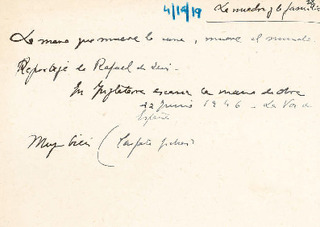 4/19/19
La madre y la familia
La mano que mueve la cuna, mueve el mundo
Reportaje de Rafael de Luis.
En Inglaterra escasea la mano de obra
12 Junio 1946 - La Voz de
España
Muy bien (